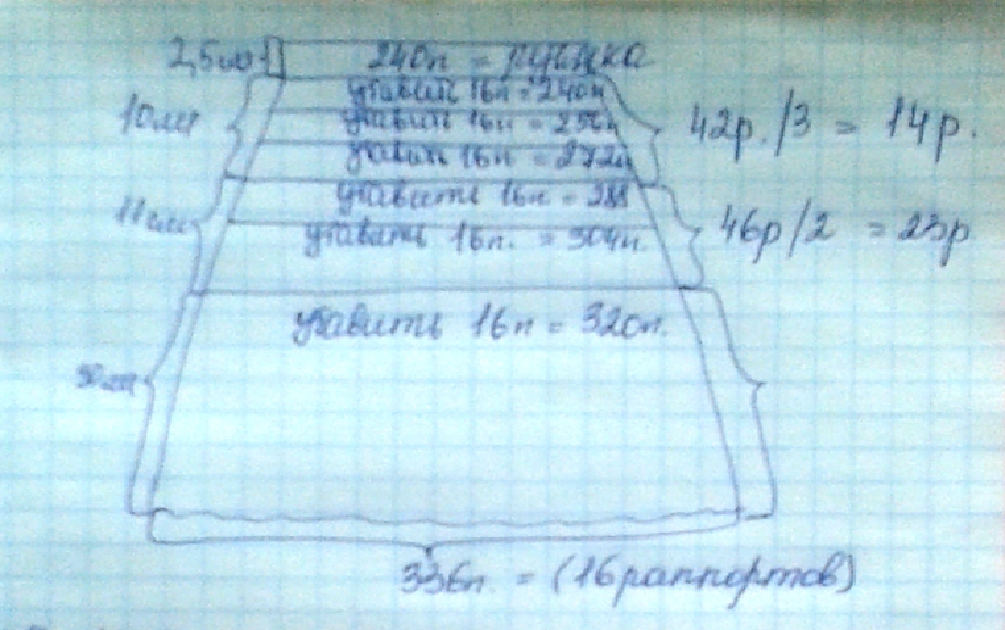 2,5см 240п = резинка
убавить 16п = 240п
10см убавить 16п = 256п 42р./3 = 14р.
убавить 16п = 272п
убавить 16п = 288
11см убавить 16п. = 304п. 46р/2 = 23р
убавить 16п = 320п.
336п. = (16 раппортов)